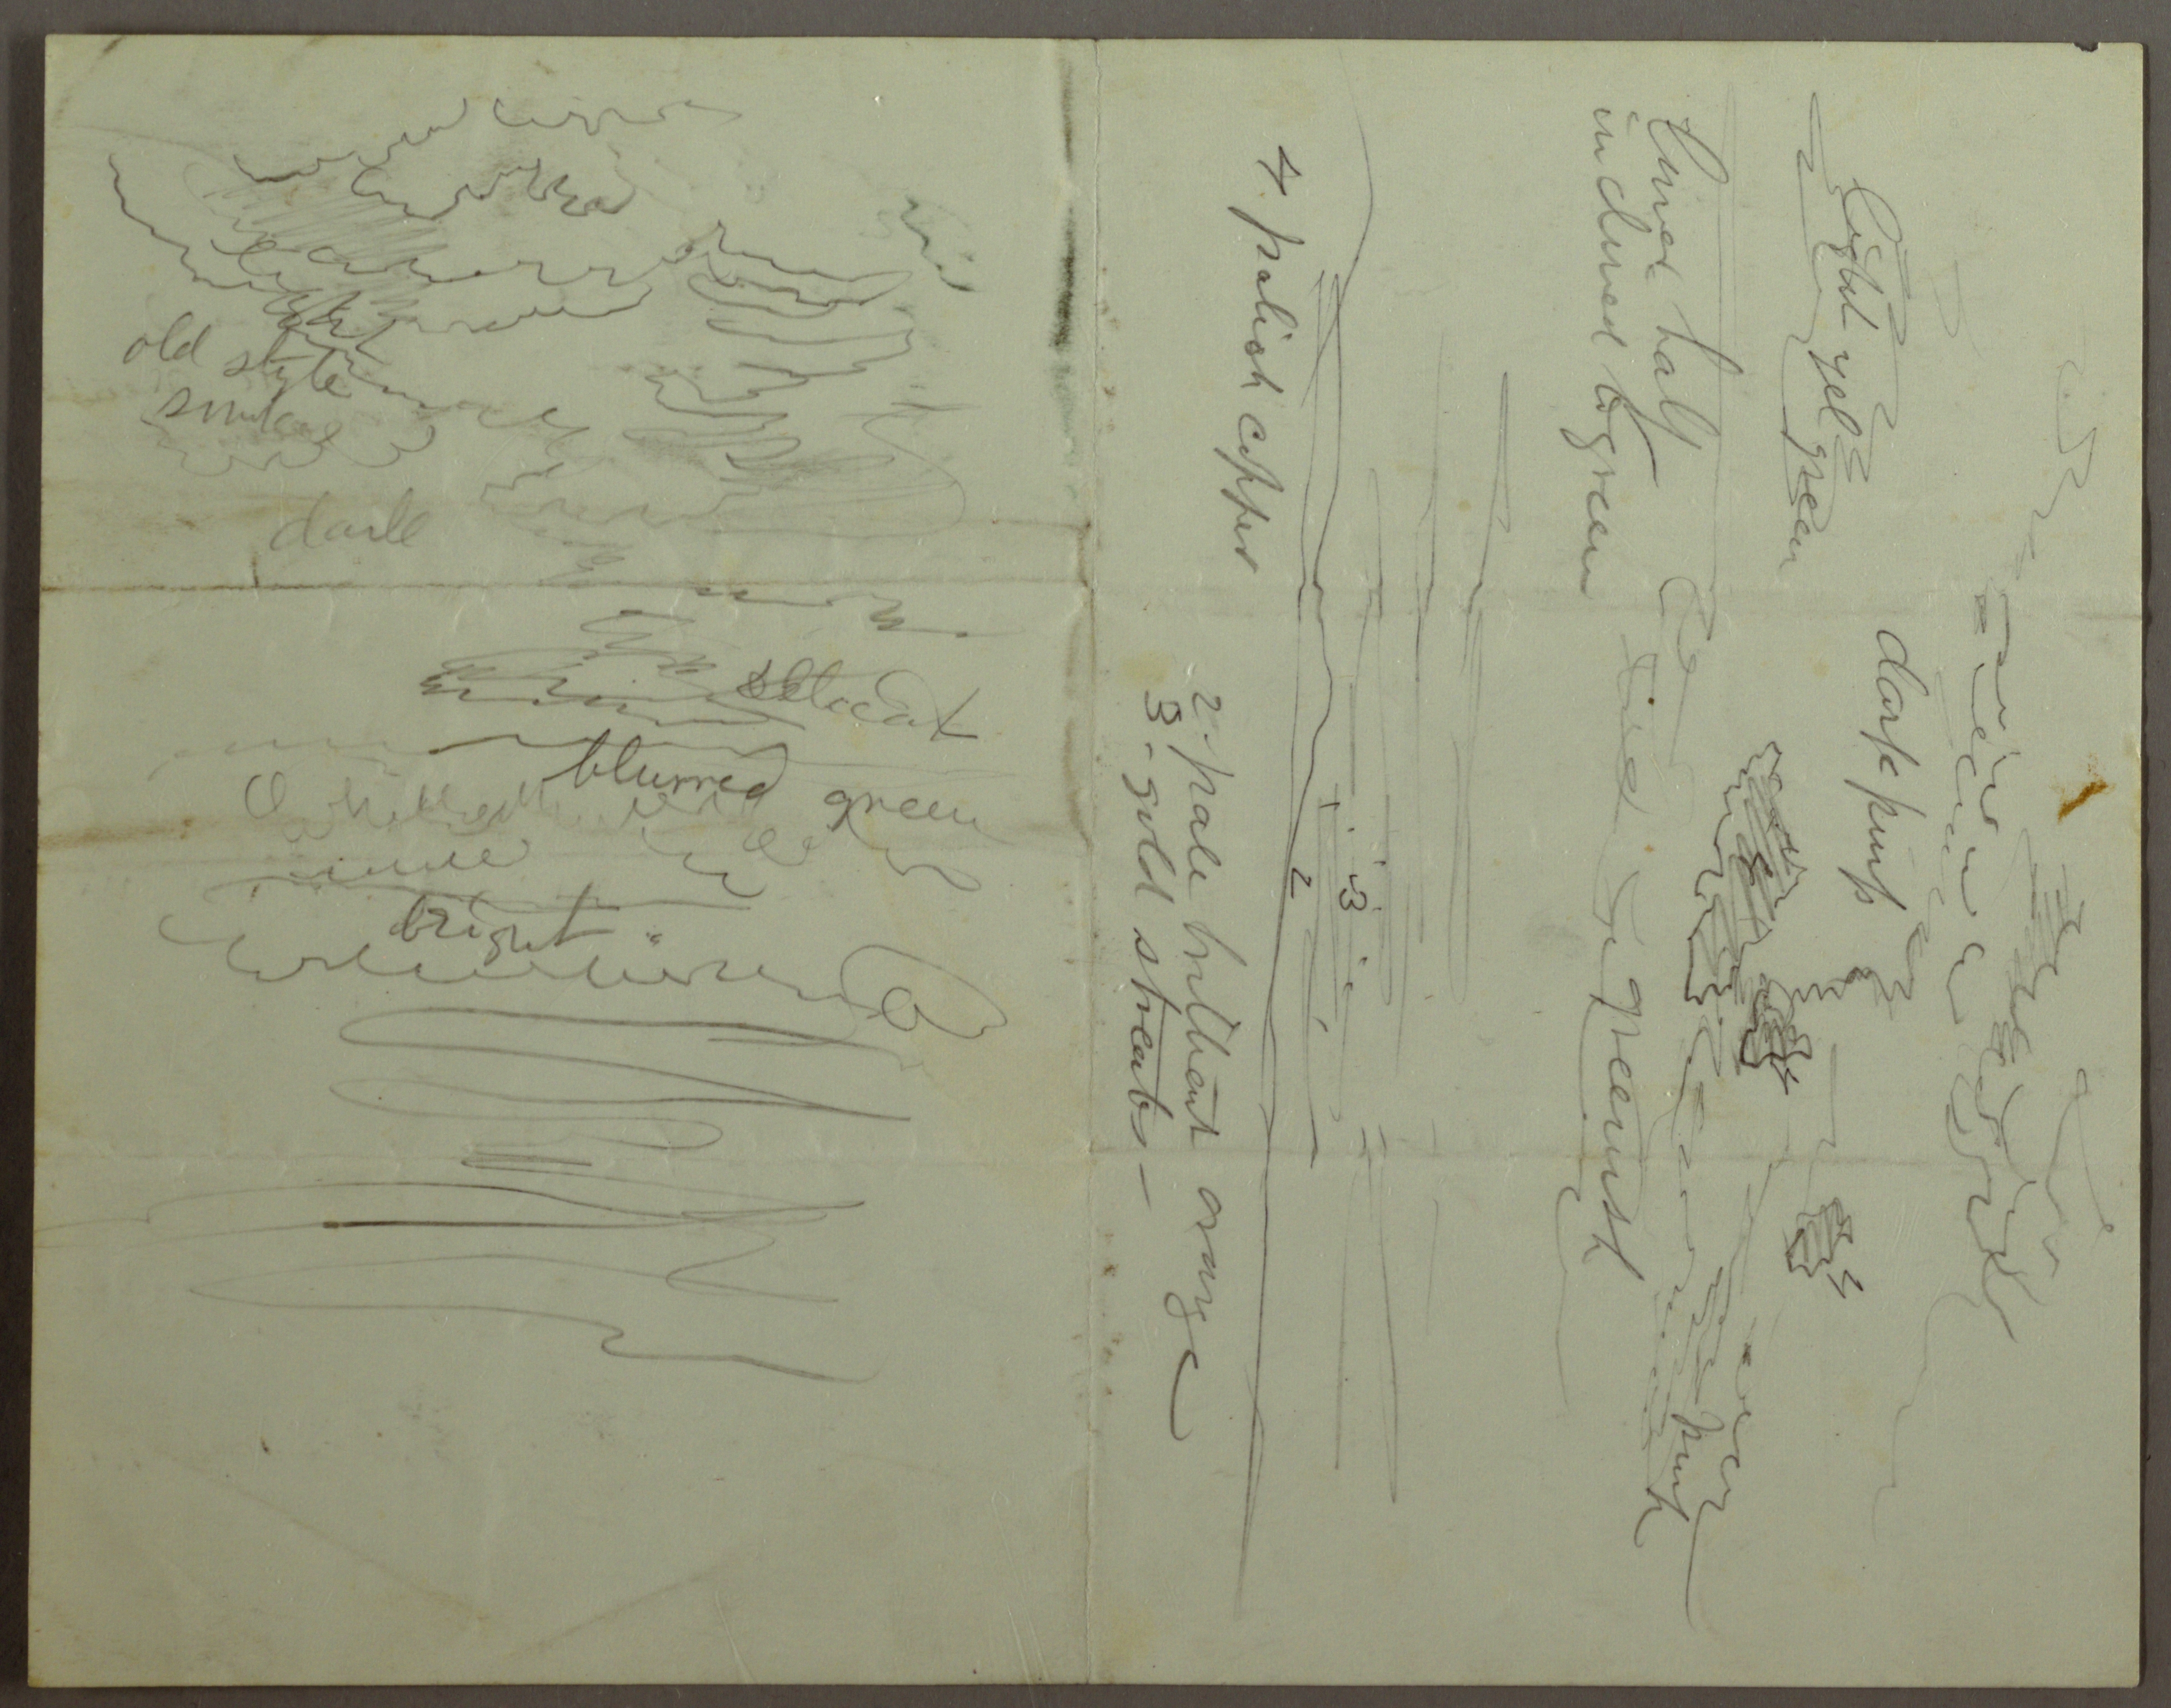 old style
smokes
dark
delicat
blurred
green
bright
light yel green
dark pink
lined half
inclined to green
greenish
pink
3
2
4 palish copper
2. pale brilliant orange
3 - gold streaks -